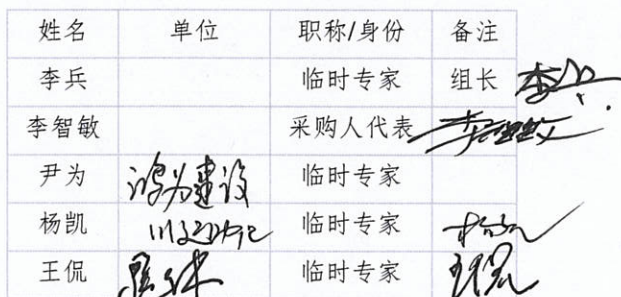 姓名 单位 职称/身份 备注
李兵 临时专家 组长 李兵
李智敏 采购人代表 李智敏
尹为 鸿为建设 临时专家
杨凯 临时专家 杨凯
王侃 临时专家 王侃